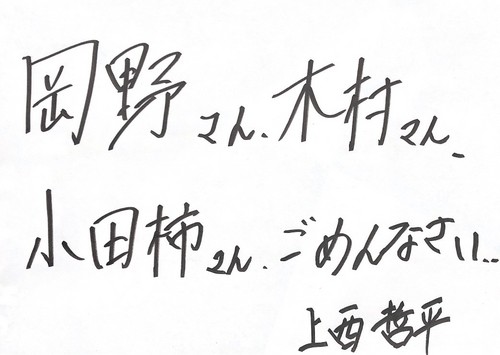 岡野さん.木村さん.
小田柿さん.ごめんなさい..
上西哲平